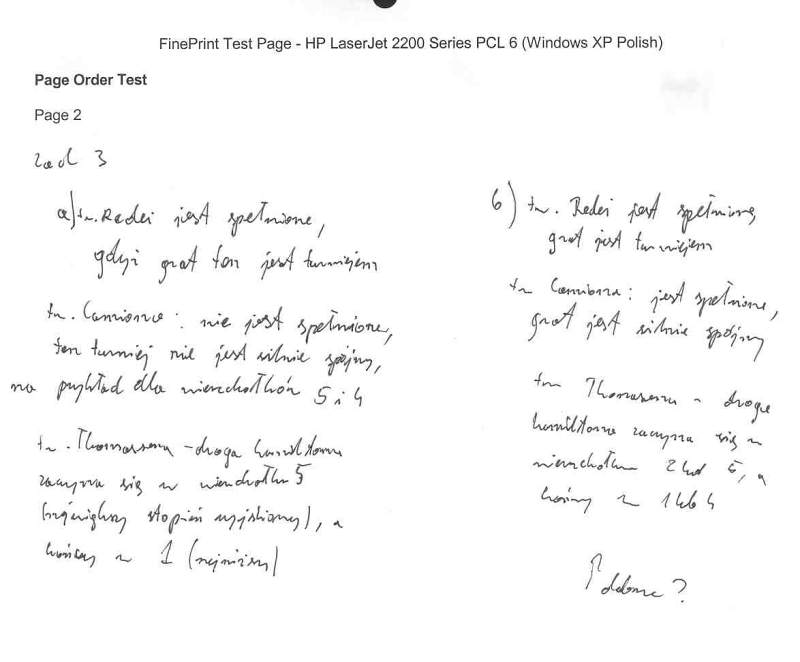 FinePrint Test Page - HP LaserJet 2200 Series PCL 6 (Windows XP Polish)
Page Order Test
Page 2
zad 3
a) tw. Redei jest spełnione,
gdyż graf ten jest turniejem
tw. Camiona: nie jest spełnione,
ten turniej nie jest silnie spójny,
na przykład dla wierzchołków 5 i 4
tw. Thomassena - droga hamiltona
zaczyna się w wierzchołku 5
(największy stopień wyjściowy), a
kończy w 1 (najmniejszy)
b) tw. Redei jest spełnione,
graf jest turniejem
tw Camiona: jest spełnione,
graf jest silnie spójny
tw Thomassena - droga
hamiltona zaczyna się w
wierzchołku 2 lub 5, a
kończy w 1 lub 4
dobrze?